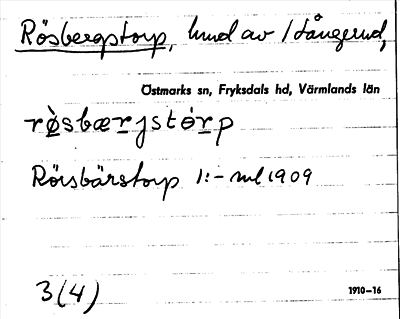 Rösbergstorp, hmd av Hångerud,
Östmarks sn, Fryksdals hd, Värmlands län
rø̀sbærjstò̱rp
Rörsbärstorp 1:- ml 1909
3(4)
1910–16